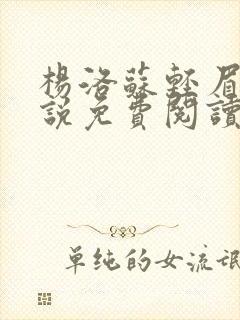 楊洛蘇輕眉
說免費閱讀
單純的女流氓